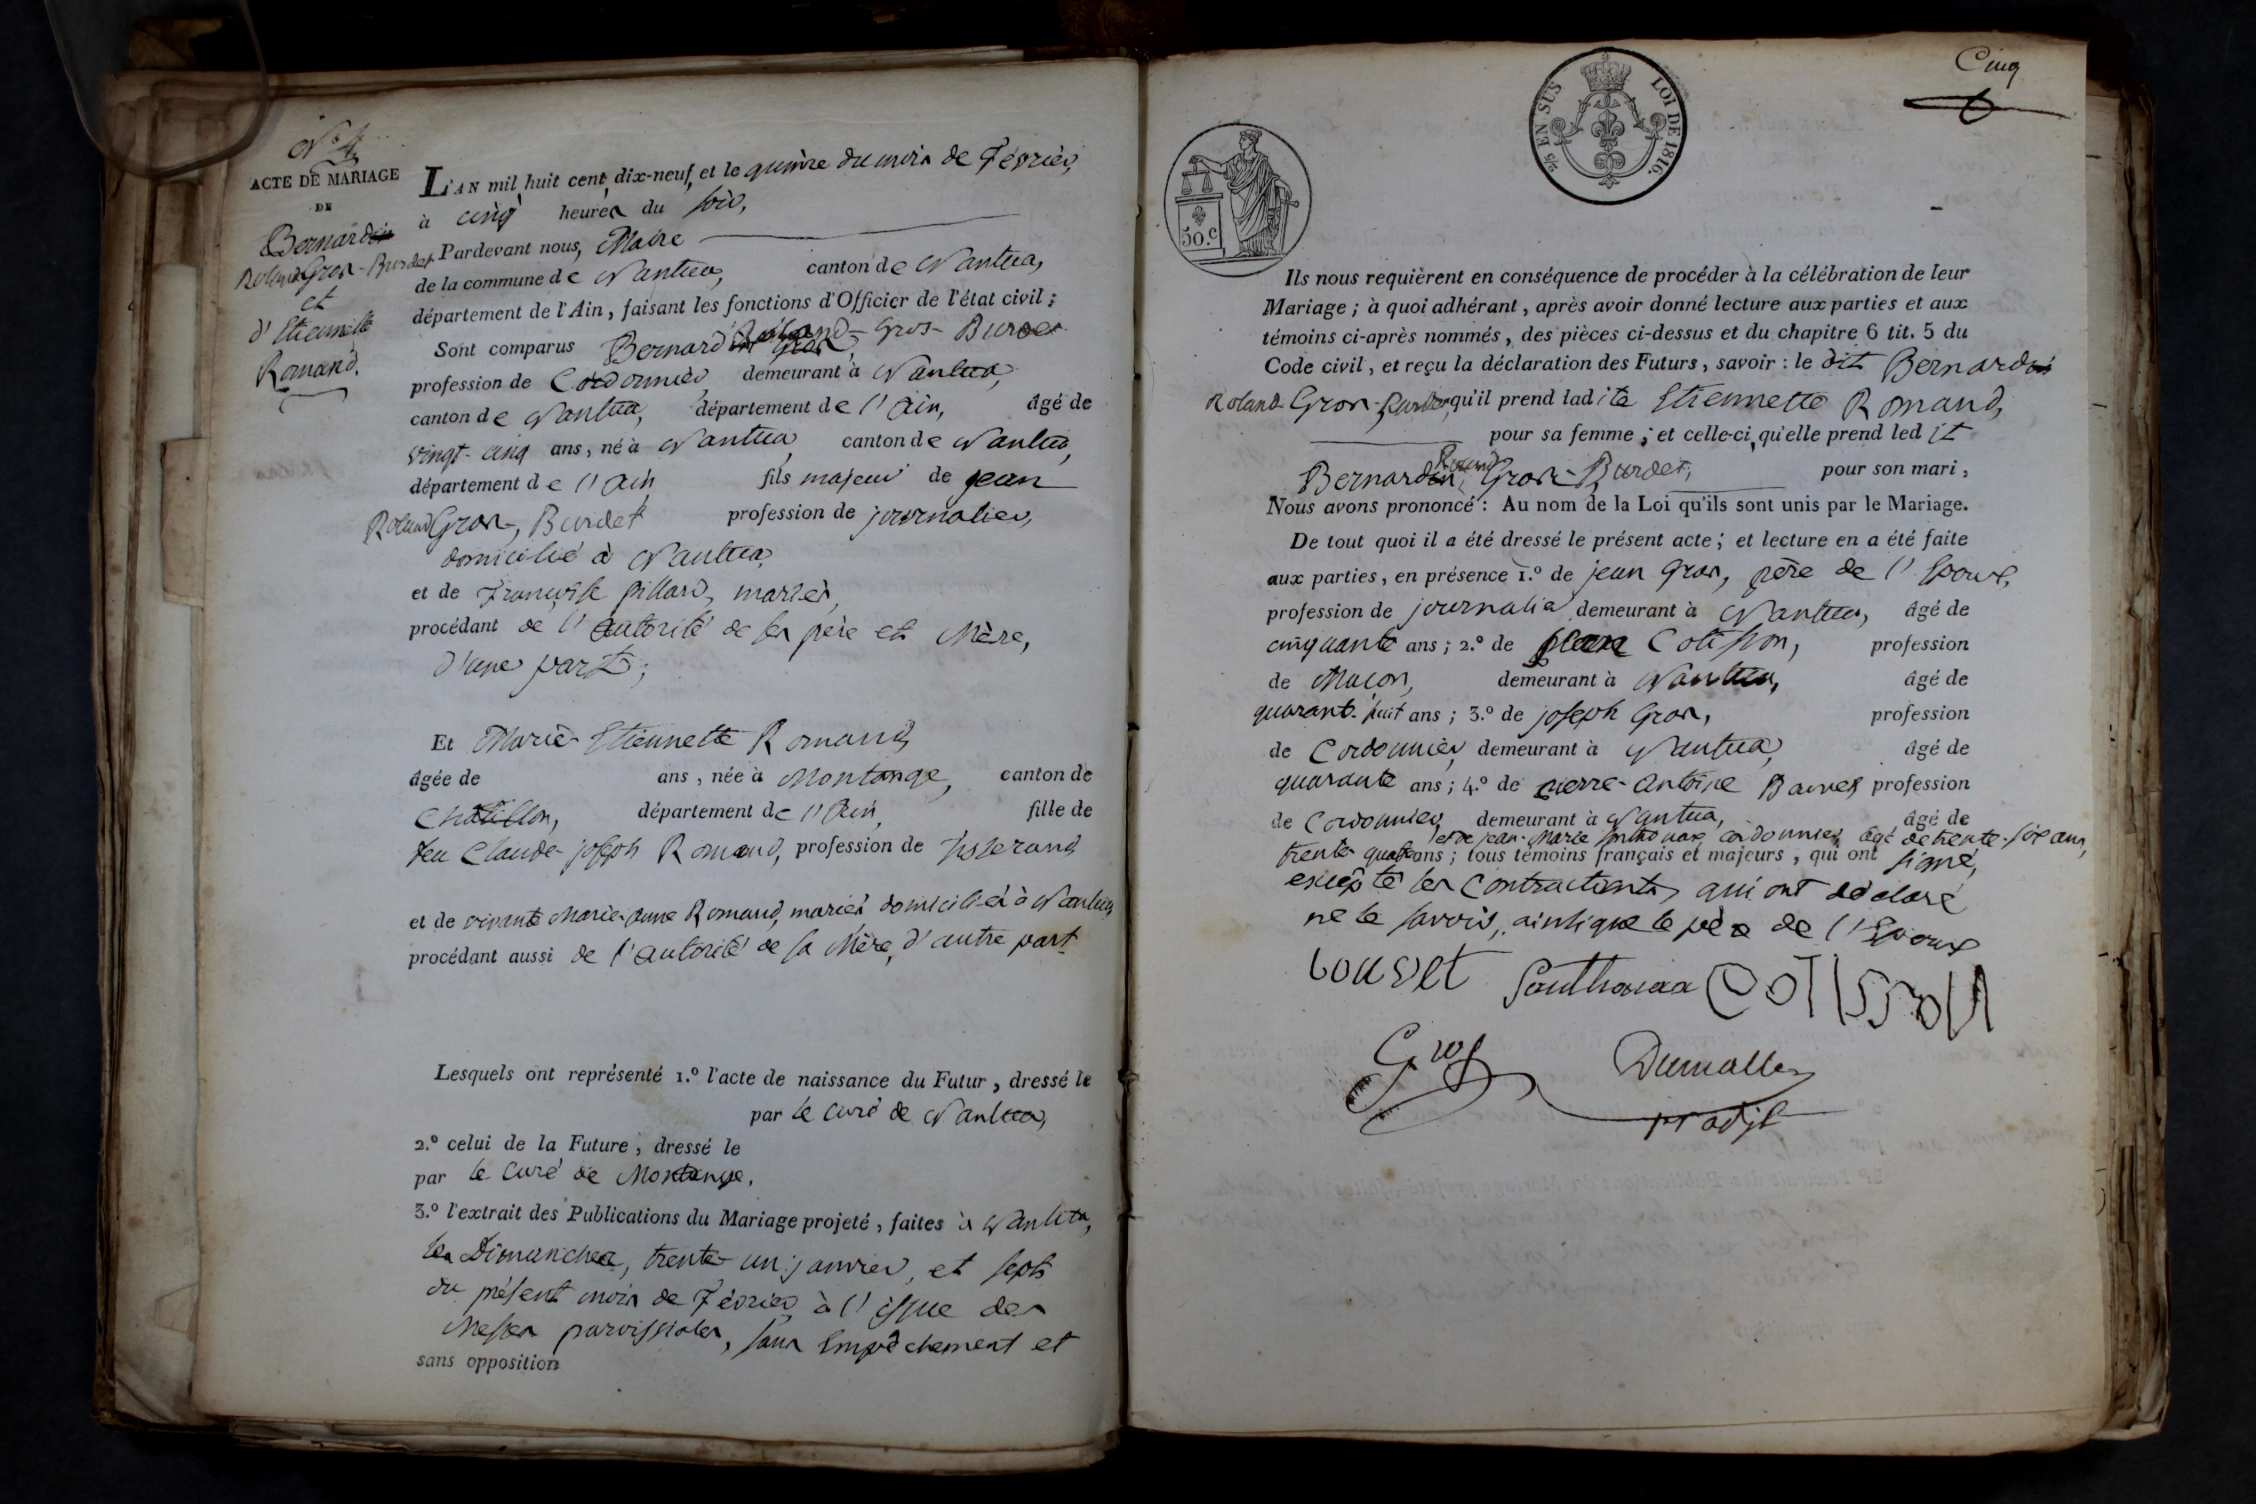 N.º 4
ACTE DE MARIAGE
DE
Bernard
Roland Gros-Burdet
et
d'Etiennette
Romand.
L'AN mil huit cent dix-neuf, et le quinze du mois de Février,
à cinq heures du soir,
Pardevant nous, Maire
de la commune de Nantua, canton de Nantua,
département de l'Ain, faisant les fonctions d'Officier de l'état civil;
Sont comparus Bernard Roland-Gros-Burdet
profession de Cordonnier demeurant à Nantua,
canton de Nantua, département de l'Ain, âgé de
vingt-cinq ans, né à Nantua canton de Nantua,
département de l'Ain fils majeur de jean
Roland Gros, Burdet profession de journalier,
domicilié à Nantua,
et de Françoise pillard, mariés,
procédant de l'autorité de ses père et Mère,
d'une part;
Et Marie-Etiennette Romand,
âgée de ans, née à Montange, canton de
Chatillon, département de l'Ain, fille de
feu Claude-joseph Romand, profession de Tisserand
et de vivante Marie-anne Romand, mariés domiciliés à Nantua
procédant aussi de l'autorité de sa Mère, d'autre part
Lesquels ont représenté 1.º l'acte de naissance du Futur, dressé le
par le curé de Nantua,
2.º celui de la Future, dressé le
par le Curé de Montange.
3.º l'extrait des Publications du Mariage projeté, faites à Nantua,
les Dimanches, trente-un janvier, et sept
du présent mois de Février, à l'issue des
Messes parroissiales, sans Empêchement et
sans opposition
Cinq
2/5 EN SUS LOI DE 1816.
50.c
Ils nous requièrent en conséquence de procéder à la célébration de leur
Mariage; à quoi adhérant, après avoir donné lecture aux parties et aux
témoins ci-après nommés, des pièces ci-dessus et du chapitre 6 tit. 5 du
Code civil, et reçu la déclaration des Futurs, savoir: le dit Bernard
Roland Gros-Burdet, qu'il prend ladite Etiennette Romand,
pour sa femme; et celle-ci, qu'elle prend ledit
Bernard Roland Gros-Burdet, pour son mari,
Nous avons prononcé: Au nom de la Loi qu'ils sont unis par le Mariage.
De tout quoi il a été dressé le présent acte; et lecture en a été faite
aux parties, en présence 1.º de jean Gros, père de l'Epoux,
profession de journalier demeurant à Nantua, âgé de
cinquante ans; 2.º de Cotisson, profession
de Maçon, demeurant à Nantua, âgé de
quarant-huit ans; 3.º de joseph Gros, profession
de Cordonnier demeurant à Nantua, âgé de
quarante ans; 4.º de pierre-antoine profession
de Cordonnier demeurant à Nantua, âgé de
et de jean-Marie Santhonax, cordonnier, âgé de trente-six ans,
trente-quatre ans; tous témoins français et majeurs, qui ont signé,
excepté les Contractants, qui ont déclaré
ne le savoir, ainsi que le père de l'Epoux
bouvet Santhonax COTISSON
Gros Dumollin
pr adjt